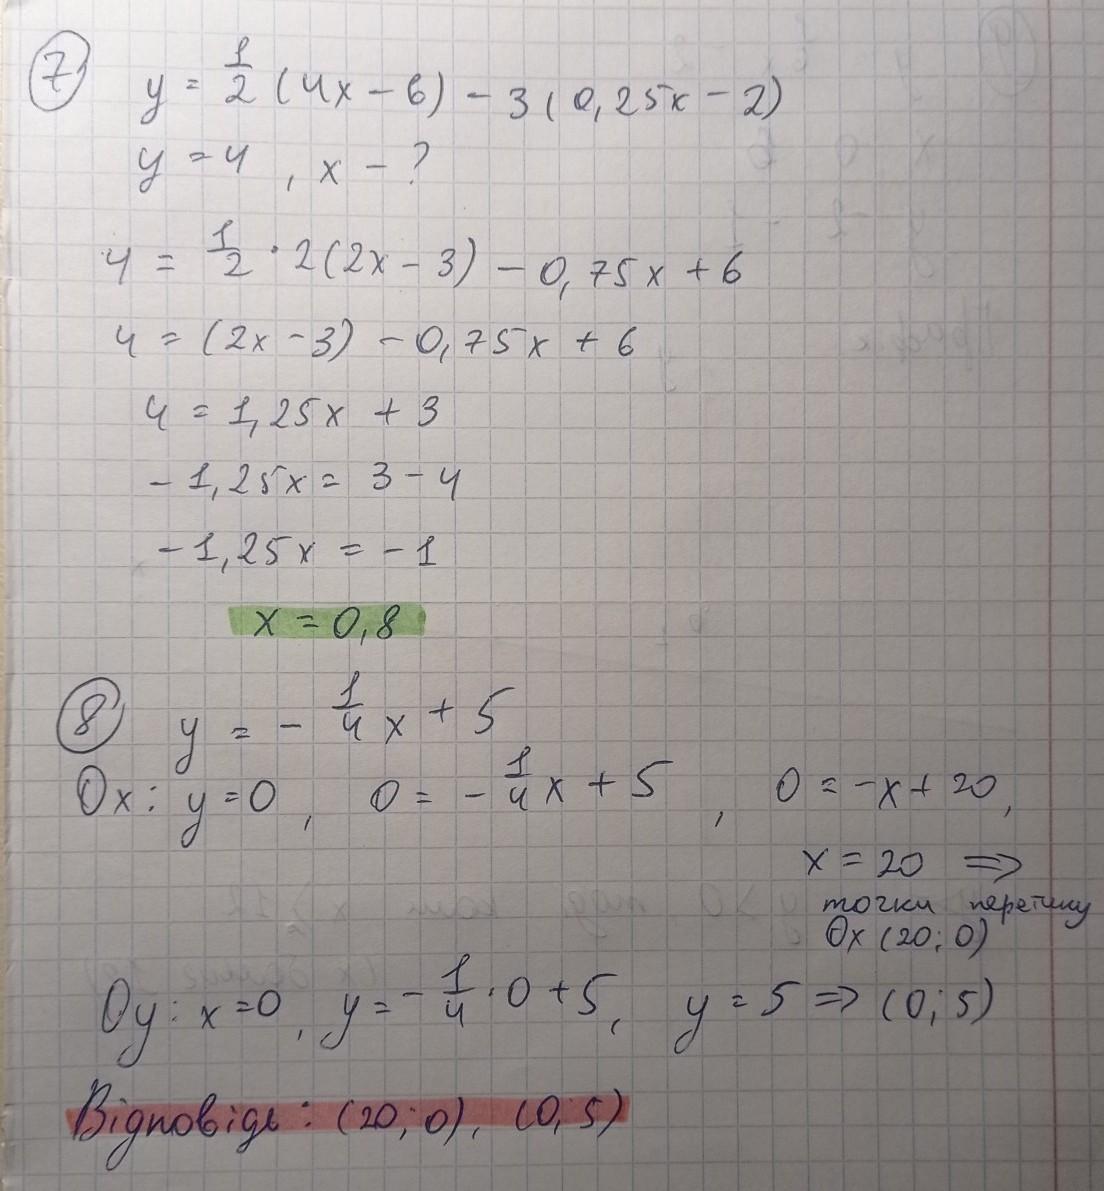 7 y = 1/2 (4x - 6) - 3(0,25x - 2)
y = 4 , x - ?
4 = 1/2 · 2(2x - 3) - 0,75x + 6
4 = (2x - 3) - 0,75x + 6
4 = 1,25x + 3
- 1,25x = 3 - 4
- 1,25x = - 1
x = 0,8
8 y = - 1/4 x + 5
Ox: y = 0 , 0 = - 1/4 x + 5 , 0 = -x + 20,
x = 20 ⇒
точки перетину
Ox (20; 0)
Oy: x = 0 , y = - 1/4 · 0 + 5, y = 5 ⇒ (0; 5)
Відповідь: (20; 0), (0; 5)